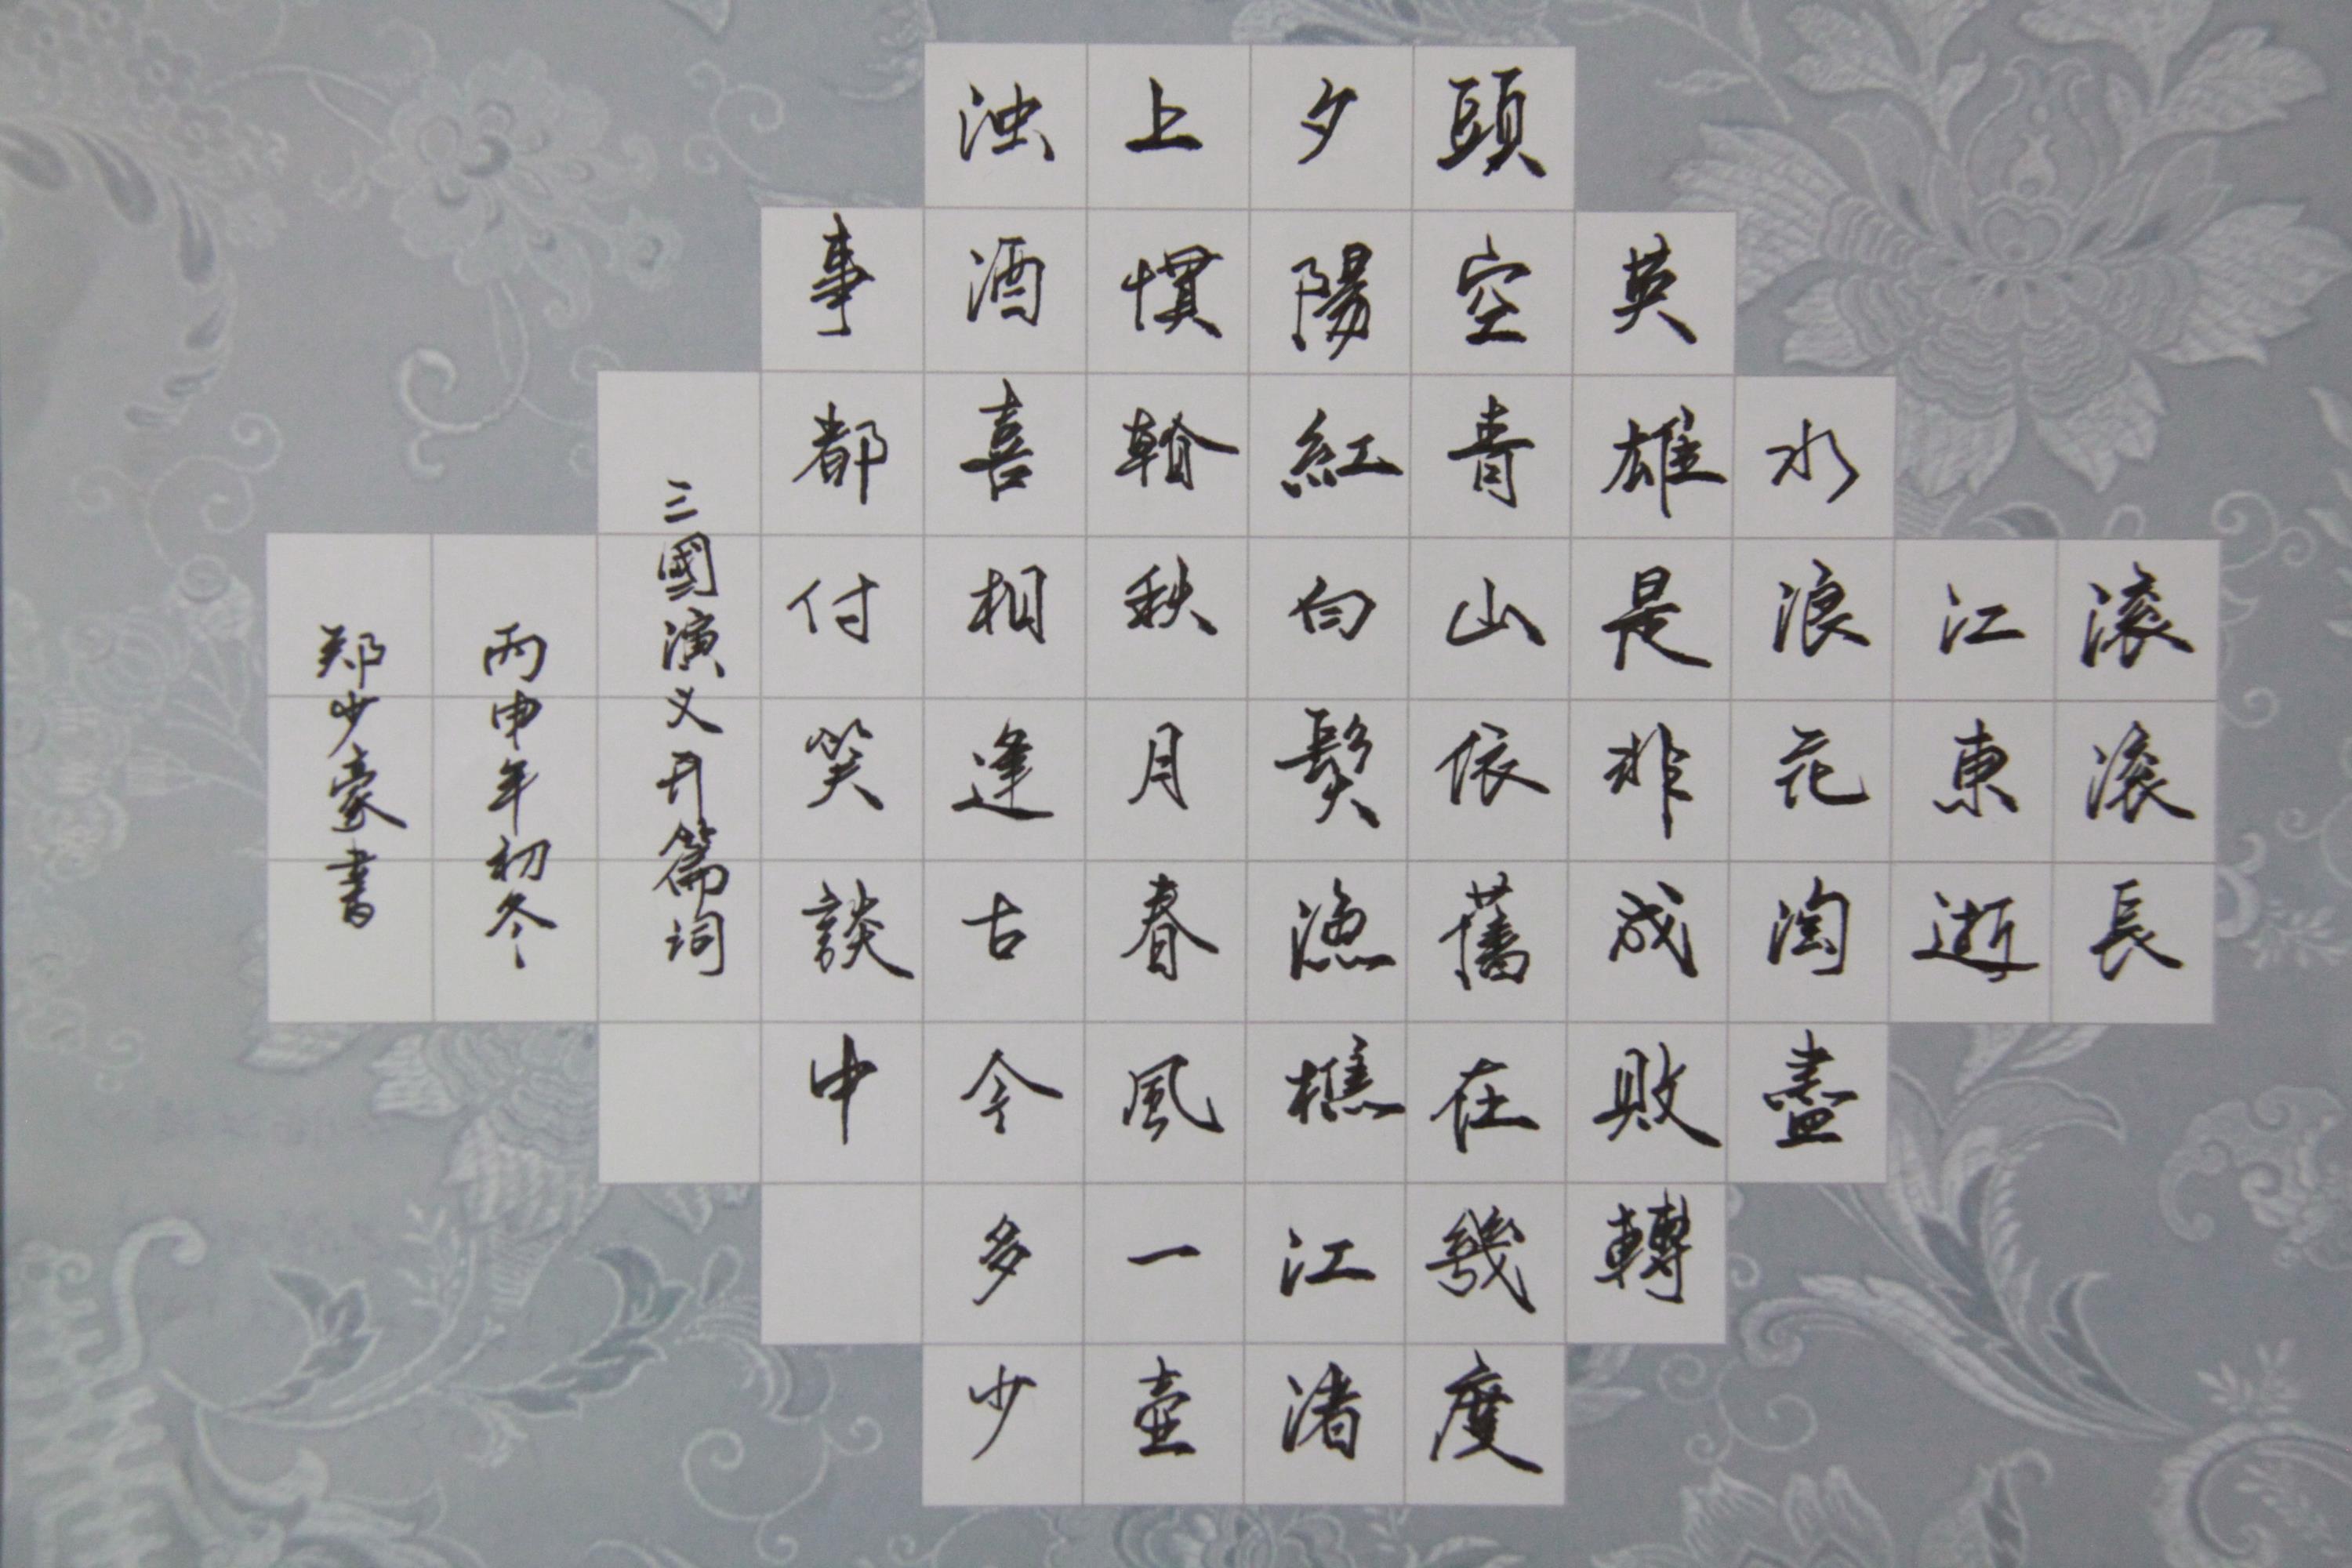 滚滚長
江東逝
水浪花淘盡
英雄是非成敗轉
頭空青山依舊在幾度
夕陽紅白髮漁樵江渚
上慣看秋月春風一壺
浊酒喜相逢古今多少
事都付笑談中
三國演义开篇词
丙申年初冬
郑少豪書